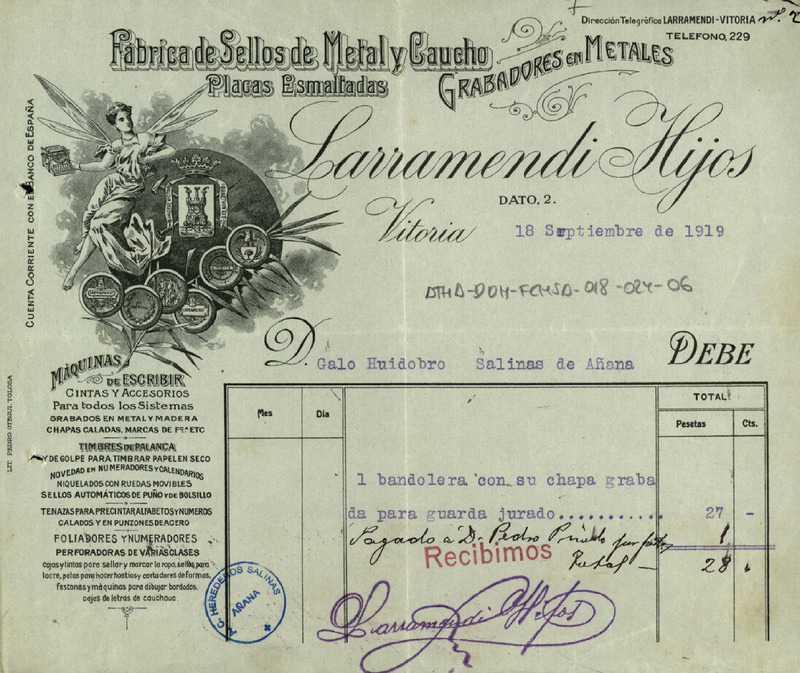 Dirección Telegráfica LARRAMENDI-VITORIA
TELEFONO, 229
Fábrica de Sellos de Metal y Caucho
Placas Esmaltadas
GRABADORES EN METALES
Larramendi Hijos
DATO, 2.
Vitoria 18 Septiembre de 1919
ATHA-DOH-FCMSA-018-024-06
CUENTA CORRIENTE CON EL BANCO DE ESPAÑA
D. Galo Huidobro Salinas de Añana DEBE
LIT. PEDRO OTEGUI TOLOSA
MÁQUINAS
DE ESCRIBIR
CINTAS Y ACCESORIOS
Para todos los Sistemas
GRABADOS EN METAL Y MADERA
CHAPAS CALADAS, MARCAS DE Fª ETC
TIMBRES DE PALANCA
Y DE GOLPE PARA TIMBRAR PAPEL EN SECO
NOVEDAD EN NUMERADORES Y CALENDARIOS
NIQUELADOS CON RUEDAS MOVIBLES
SELLOS AUTOMÁTICOS DE PUÑO Y DE BOLSILLO
TENAZAS PARA PRECINTAR, ALFABETOS Y NUMEROS
CALADOS Y EN PUNZONES DE ACERO
FOLIADORES Y NUMERADORES
PERFORADORAS DE VARIAS CLASES
cajas y tintas para sellar y marcar la ropa, sellos para
lacre, palas para hacer hostias y cortadores de formas,
festones y máquinas para dibujar bordados,
cajas de letras de cauchouc.
Mes Día TOTAL
Pesetas Cts.
1 bandolera con su chapa graba
da para guarda jurado........... 27 -
Pagado á D. Pedro 1
Total — 28
Recibimos
Larramendi Hijos
C. HEREDEROS SALINAS
AÑANA